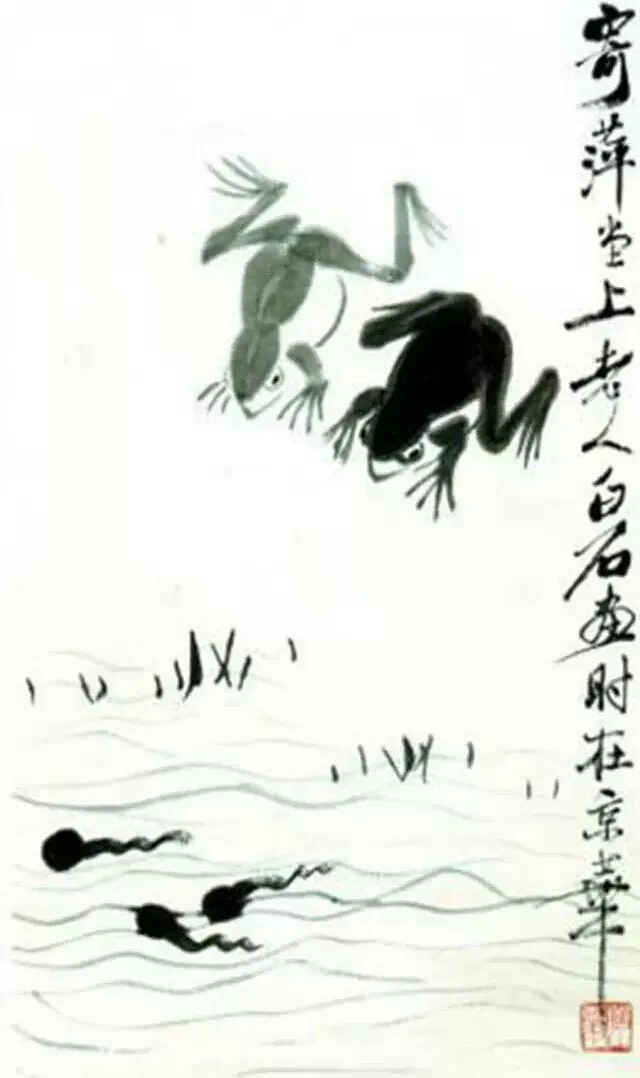 寄萍堂上老人白石画时在京华